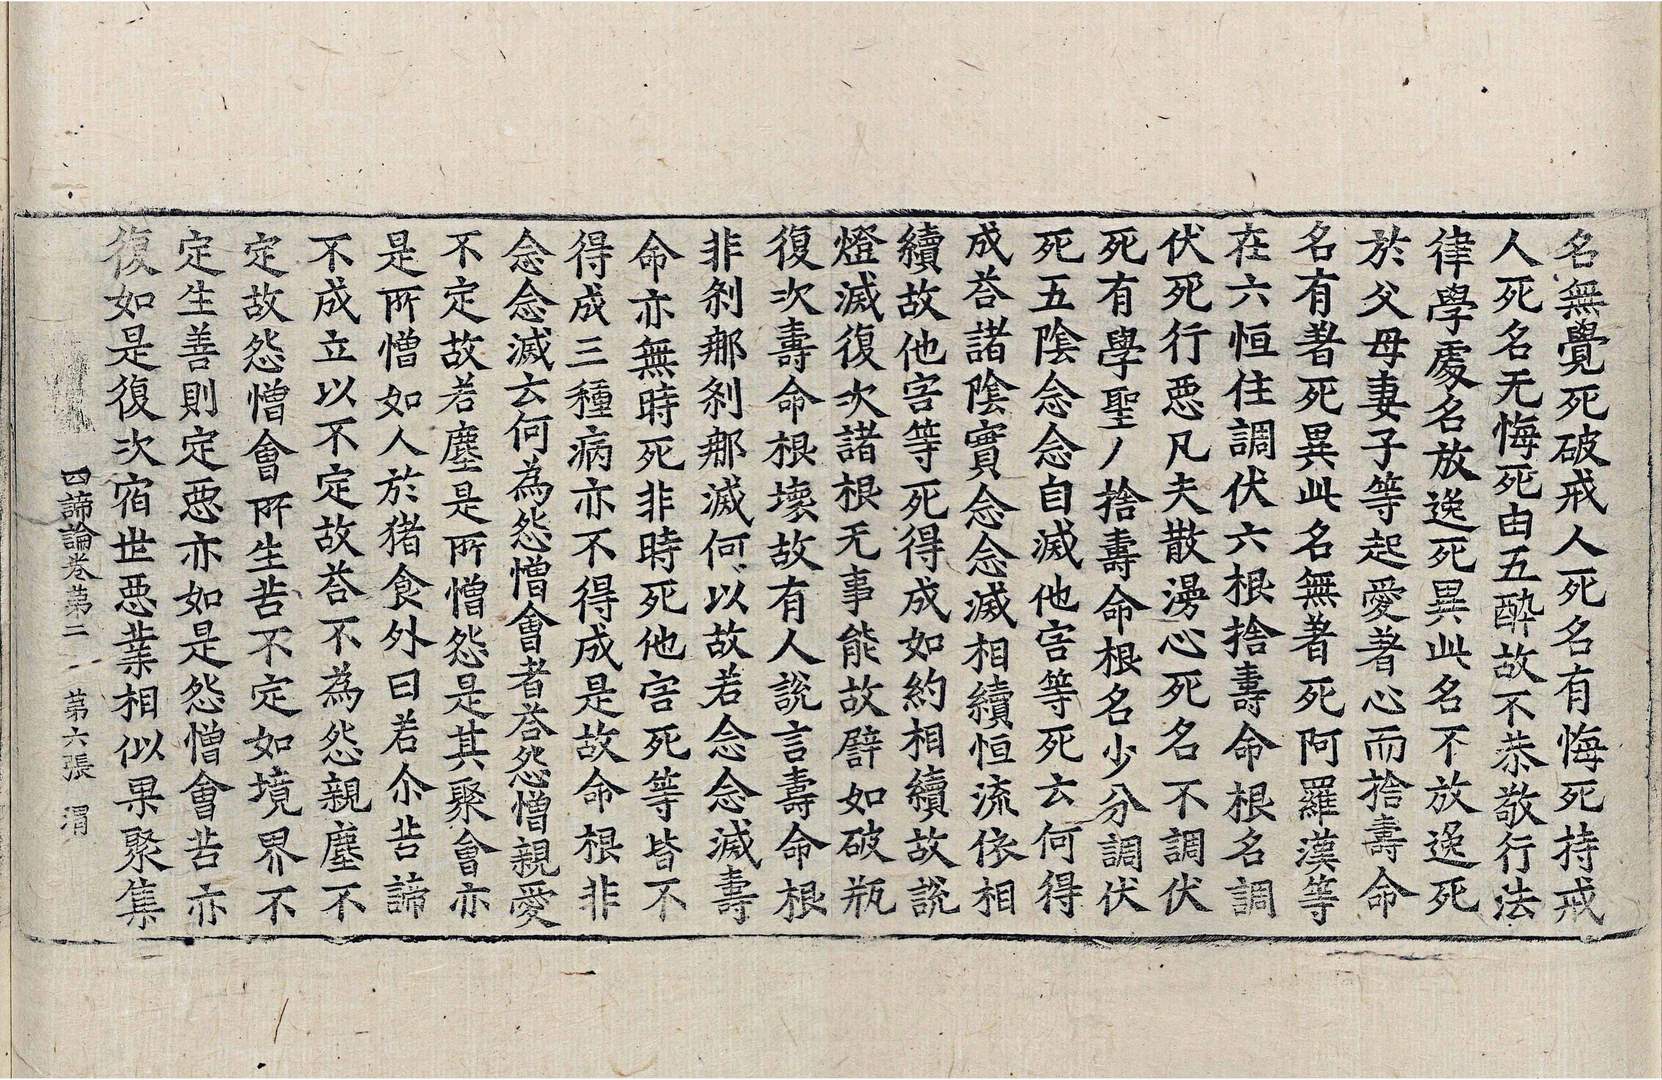 名無覺死破戒人死名有悔死持戒
人死名无悔死由五醉故不恭敬行法
律學處名放逸死異此名不放逸死
於父母妻子等起愛著心而捨壽命
名有著死異此名無著死阿羅漢等
在六恒住調伏六根捨壽命根名調
伏死行惡凡夫散漫心死名不調伏
死有學聖人捨壽命根名少分調伏
死五陰念念自滅他害等死云何得
成荅諸陰實念念滅相續恒流依相
續故他害等死得成如約相續故說
燈滅復次諸根无事能故譬如破瓶
復次壽命根壞故有人說言壽命根
非剎那剎那滅何以故若念念滅壽
命亦無時死非時死他害死等皆不
得成三種病亦不得成是故命根非
念念滅云何為怨憎會者荅怨憎親愛
不定故若塵是所憎怨是其聚會亦
是所憎如人於猪食外曰若尒苦諦
不成立以不定故荅不為怨親塵不
定故怨憎會所生苦不定如境界不
定生善則定惡亦如是怨憎會苦亦
復如是復次宿世惡業相似果聚集
四諦論卷第二　第六張　渭